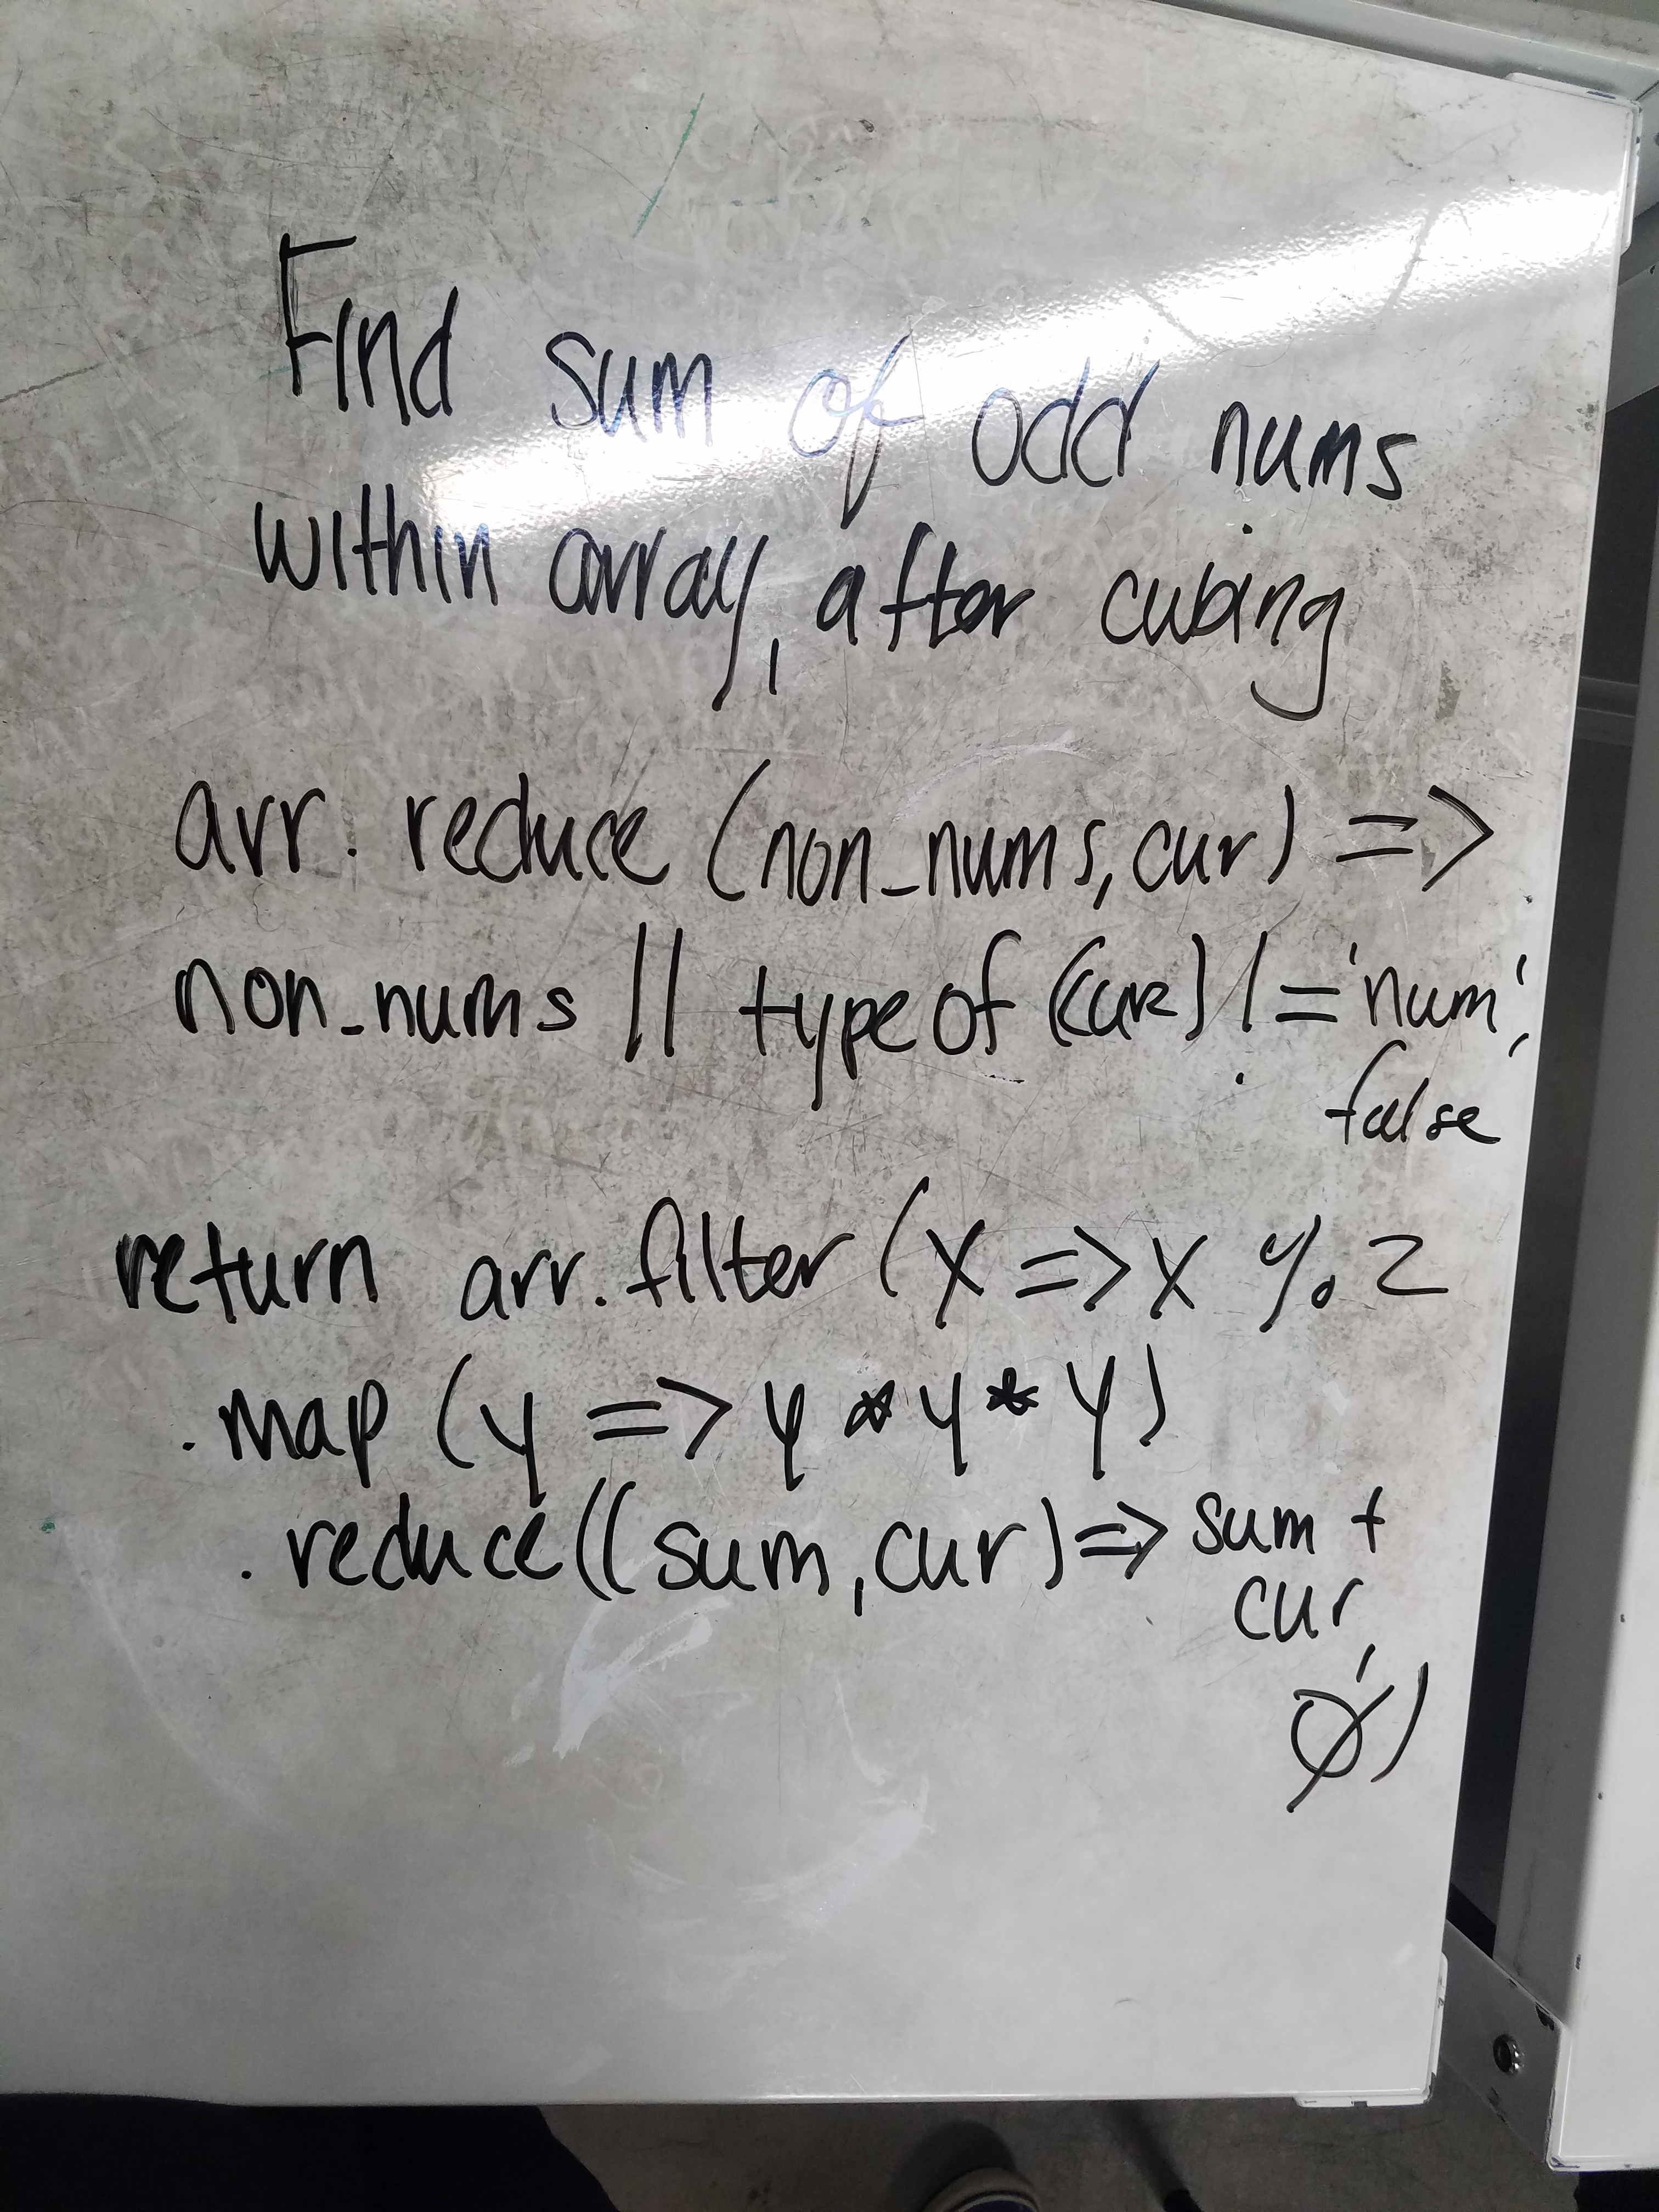 Find sum of odd nums
within array, after cubing
arr. reduce (non_nums, cur) =>
non_nums || typeof (cur) != 'num',
false
return arr.filter (x => x % 2
.map (y => y * y * y)
.reduce((sum, cur) => sum +
cur,
0)